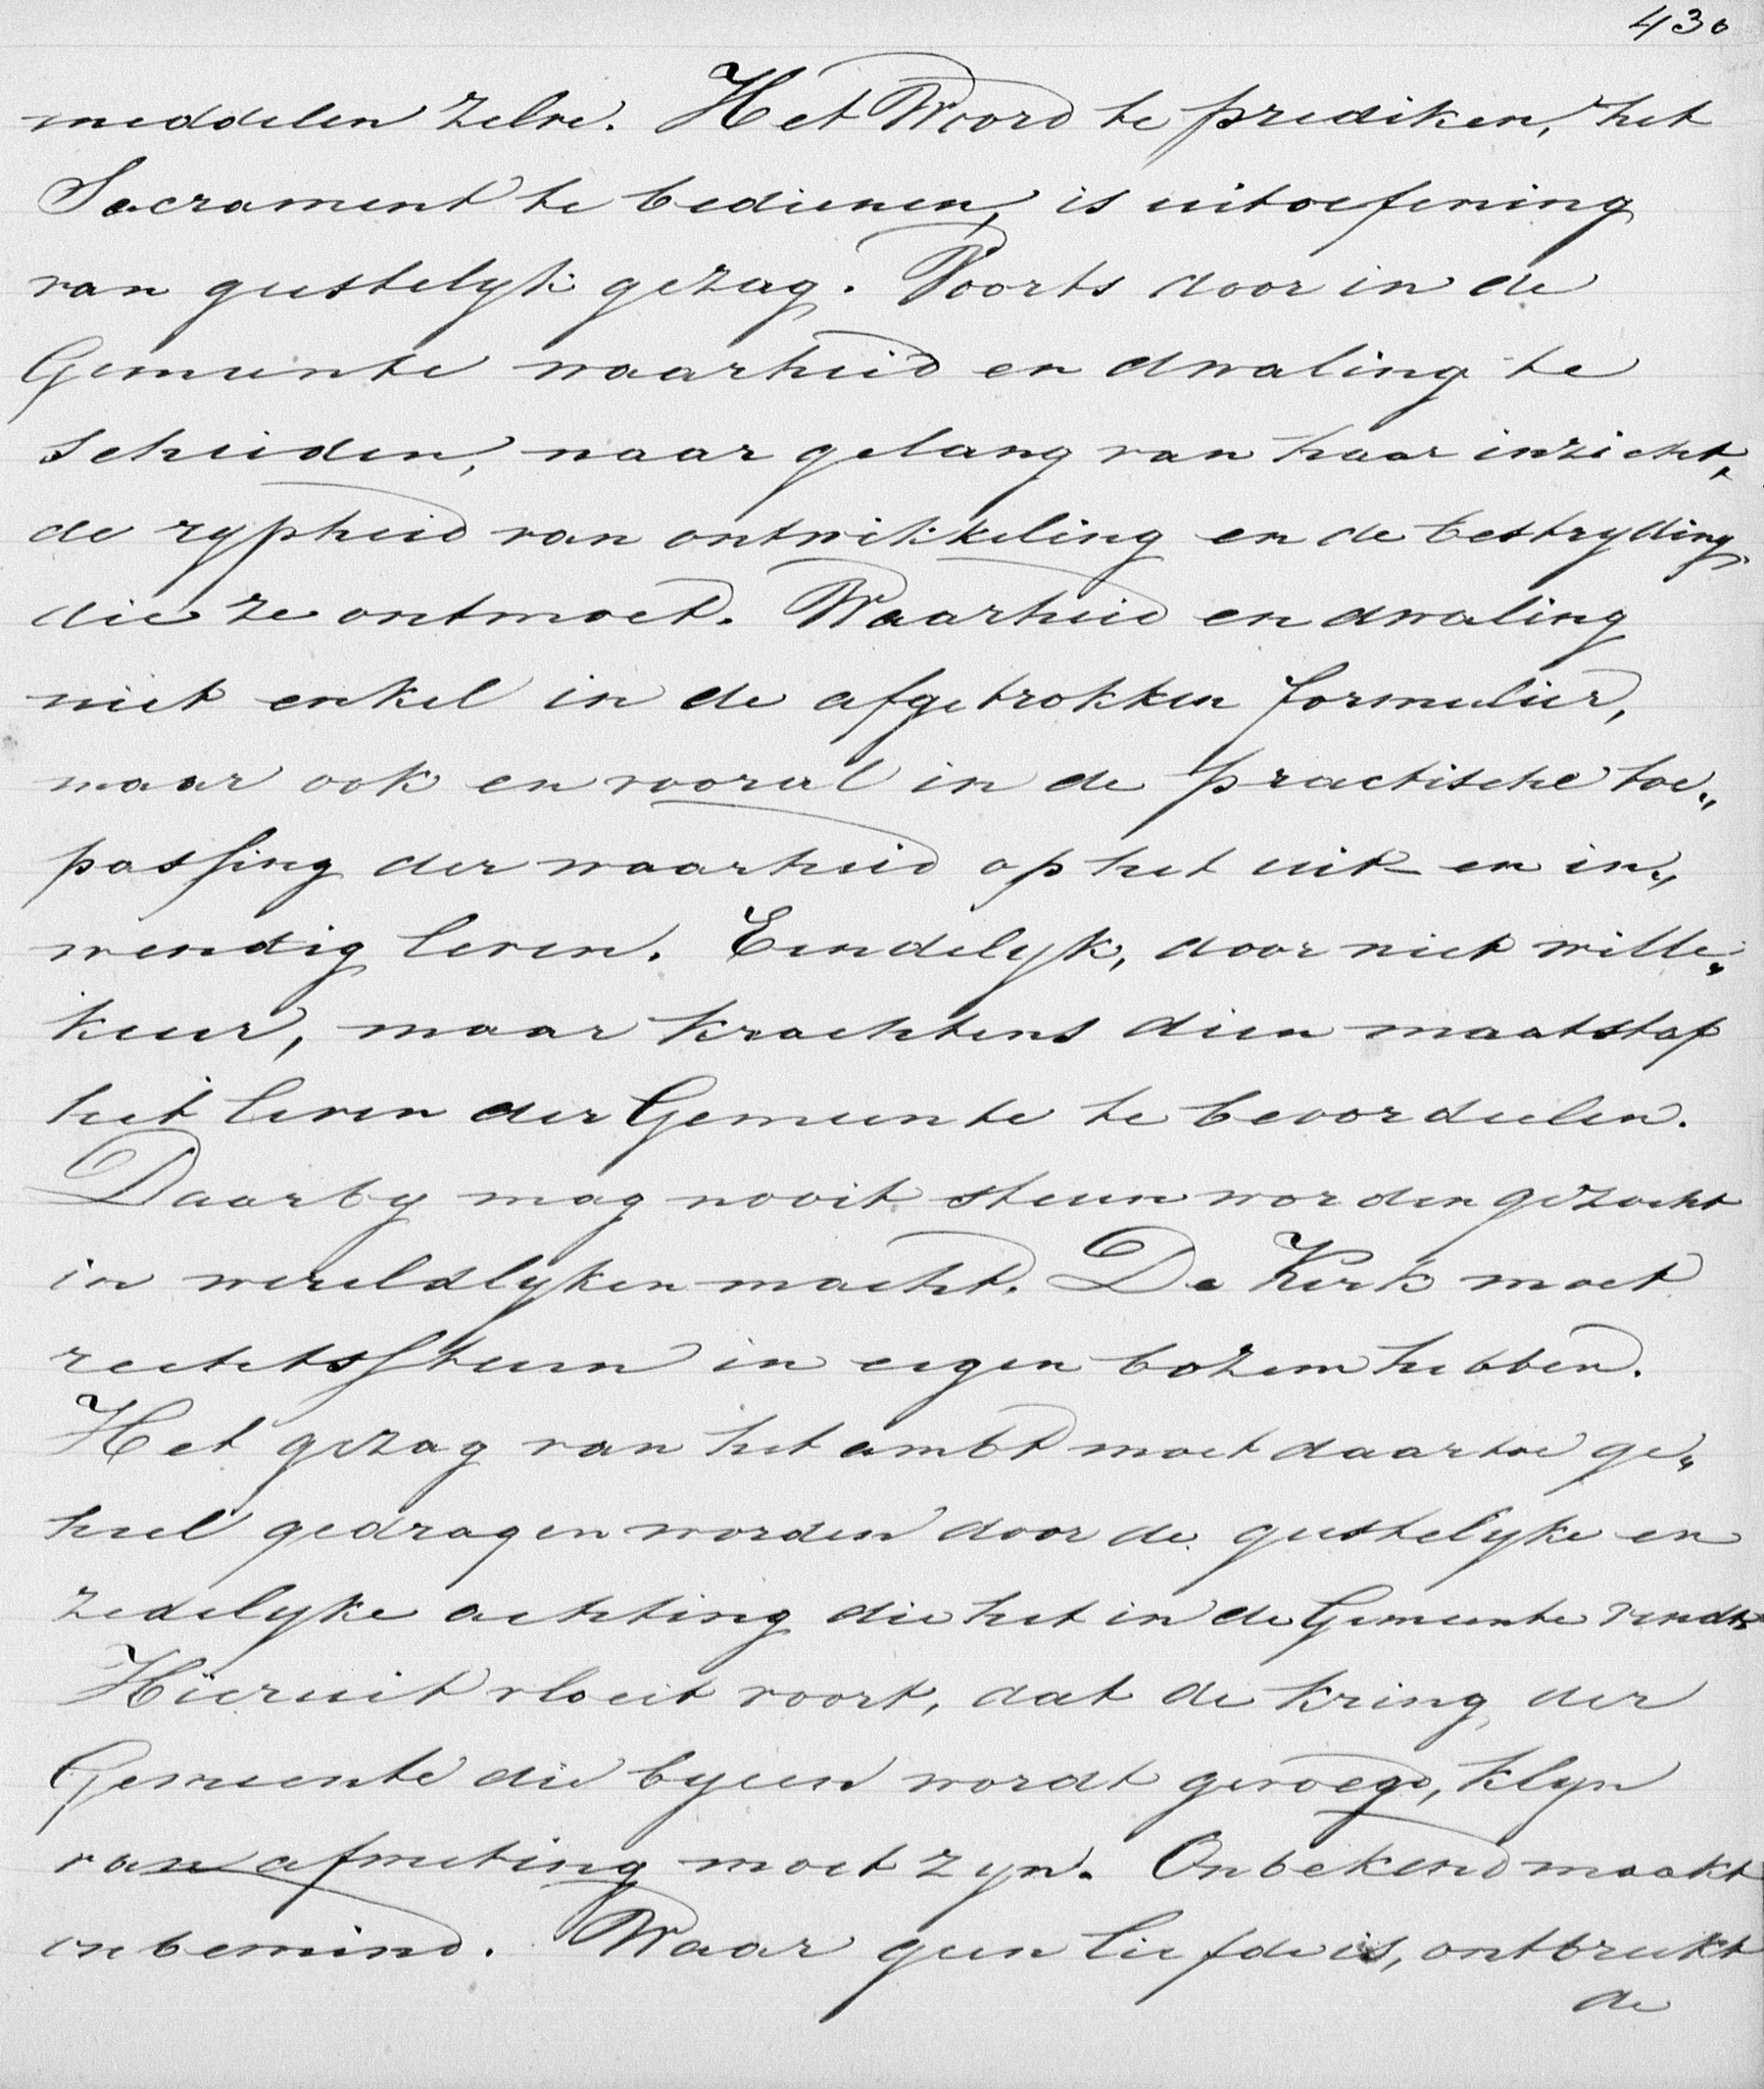 430
meddelen zelve. Het Woord te prediken, het
Sacrament te bedienen, is uitoefening
van geestelyk gezag. Voorts door in de
Gemeente waarheid en dwaling te
scheiden, naar gelang van haar inzicht,
de rypheid van ontwikkeling en de bestryding
die ze ontmoet. Waarheid en dwaling
niet enkel in de afgetrokken formulier,
maar ook en vooral in de practische toe„
passing der waarheid op het uit- en in„
wendig leven. Eindelyk, door niet wille„
keur, maar krachtens dien maatstaf
het leven der Gemeente te bevordeelen.
Daarby mag nooit steun worden gezocht
in wereldlyken macht. De Kerk moet
rechtssteun in eigen bozem hebben.
Het gezag van het ambt moet daartoe ge„
heel gedragen worden door de geestelyke en
zedelyke achting die het in de Gemeente vindt.
Hieruit vloeit voort, dat de kring der
Gemeente die byeen wordt gevoegd, klyn
van afmeting moet zyn. Onbekend maakt
onbemind. Waar geen liefde is, ontbreekt
de